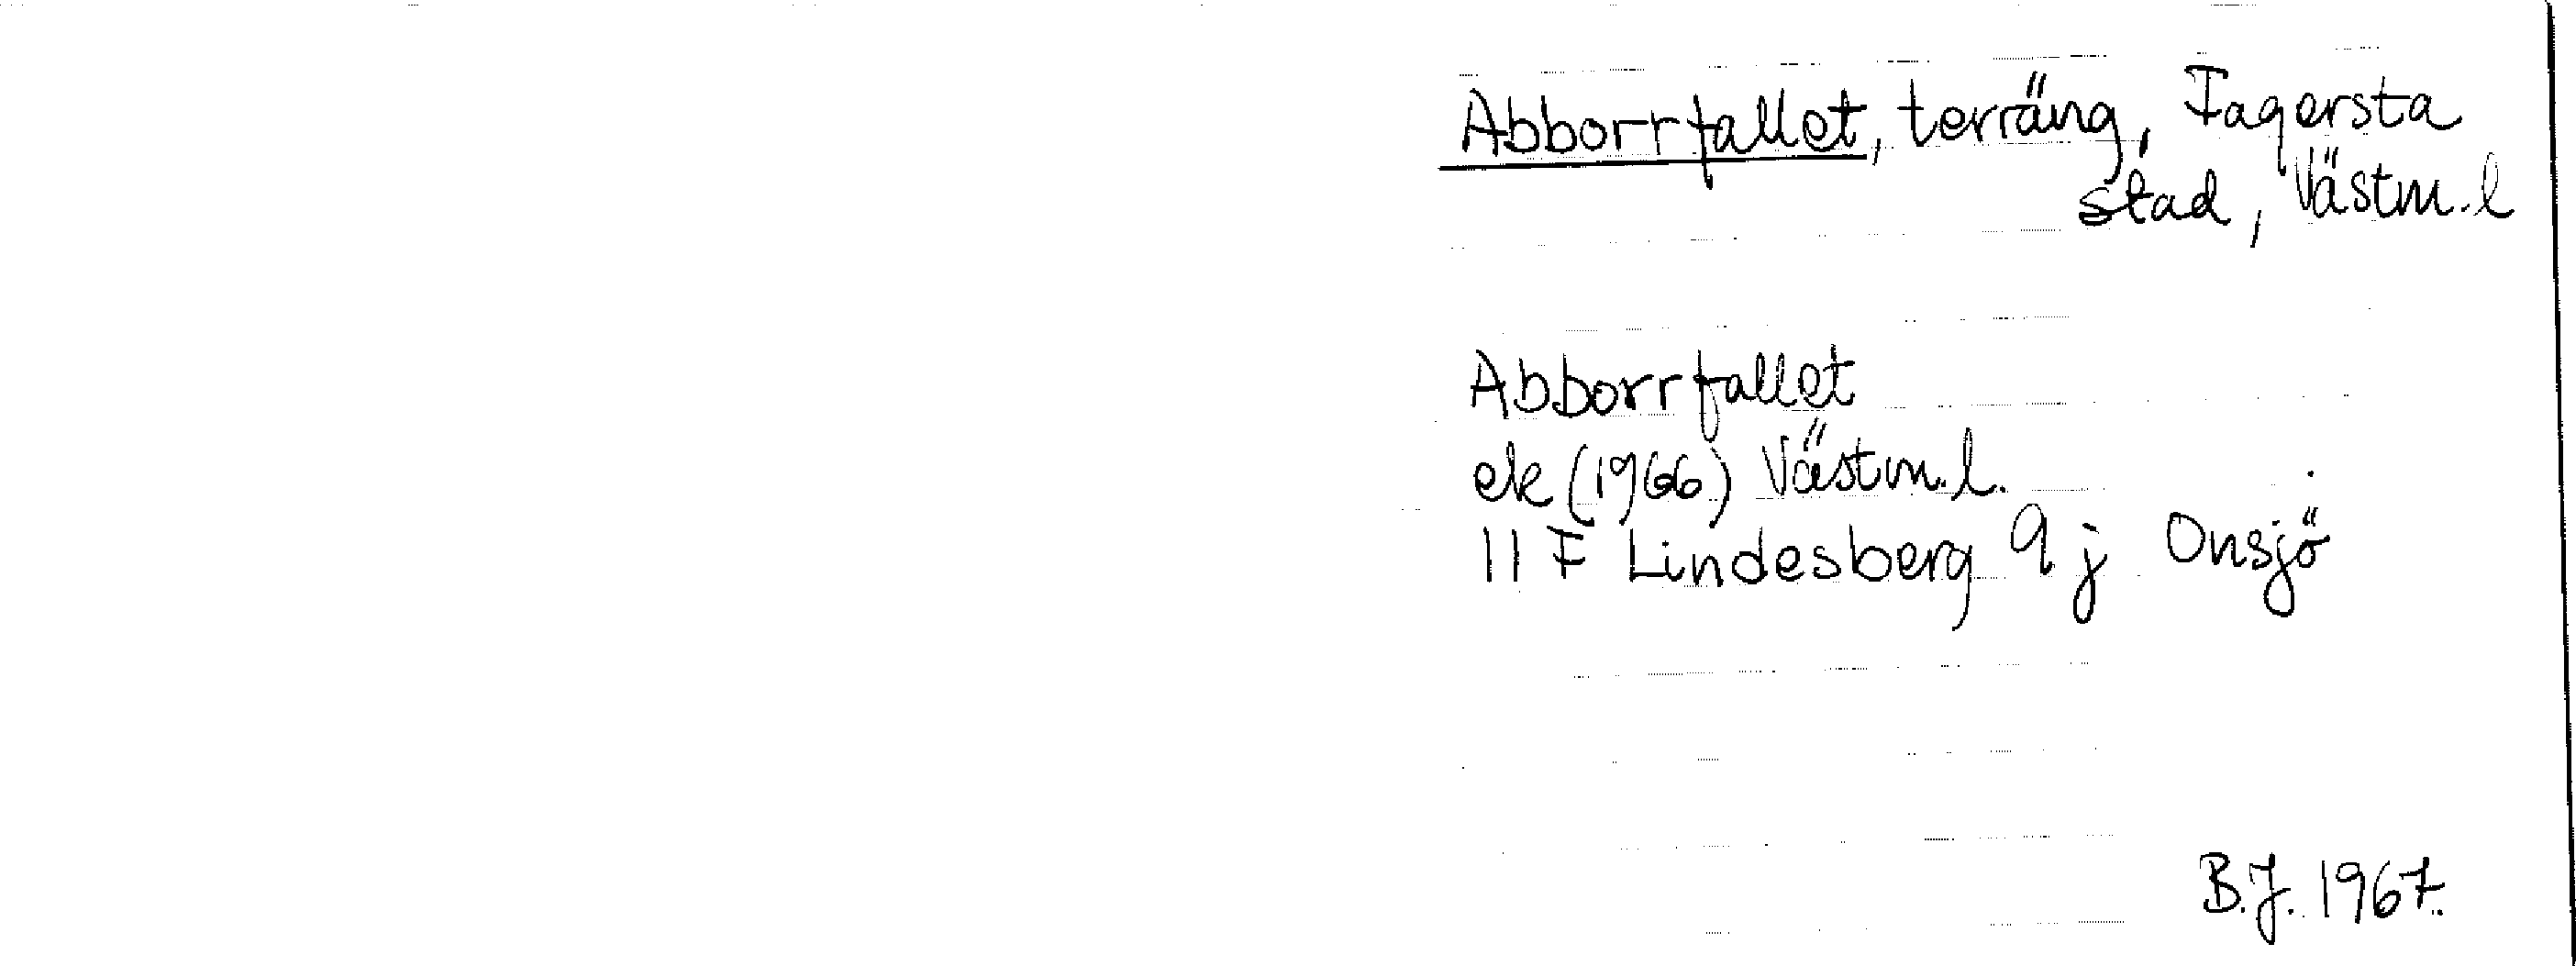 Abborrfallet, terräng, Fagersta
stad, Västm.l
Abborrfallet
ek (1966) Västm.l.
11 F Lindesberg 9 j Onsjö
B.J. 1967.